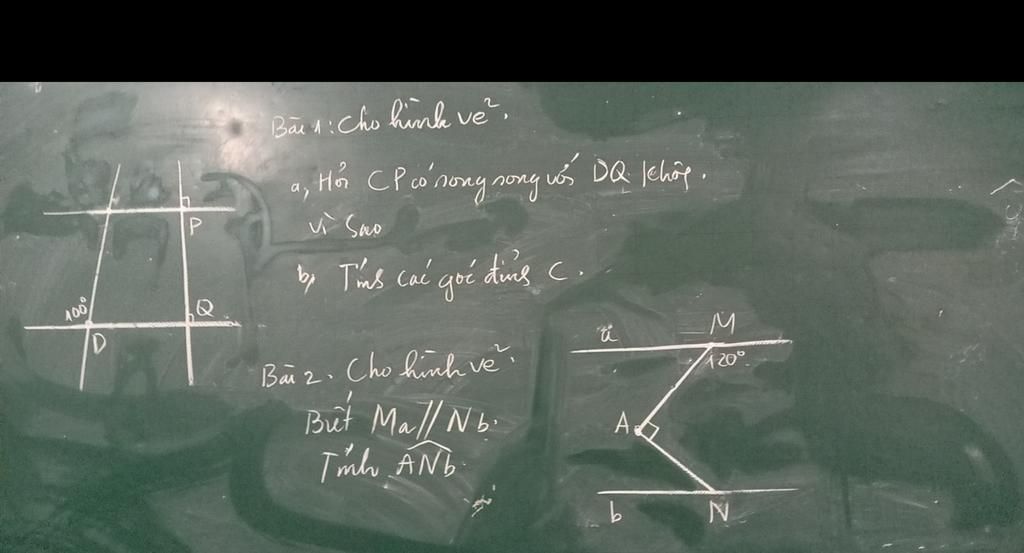 Bài 1: Cho hình vẽ.
a, Hỏi CP có song song với DQ không.
Vì Sao
b, Tính các góc đỉnh C.
P
100°
Q
D
Bài 2. Cho hình vẽ.
Biết Ma // Nb.
Tính ANb.
a
M
120°
A
b
N